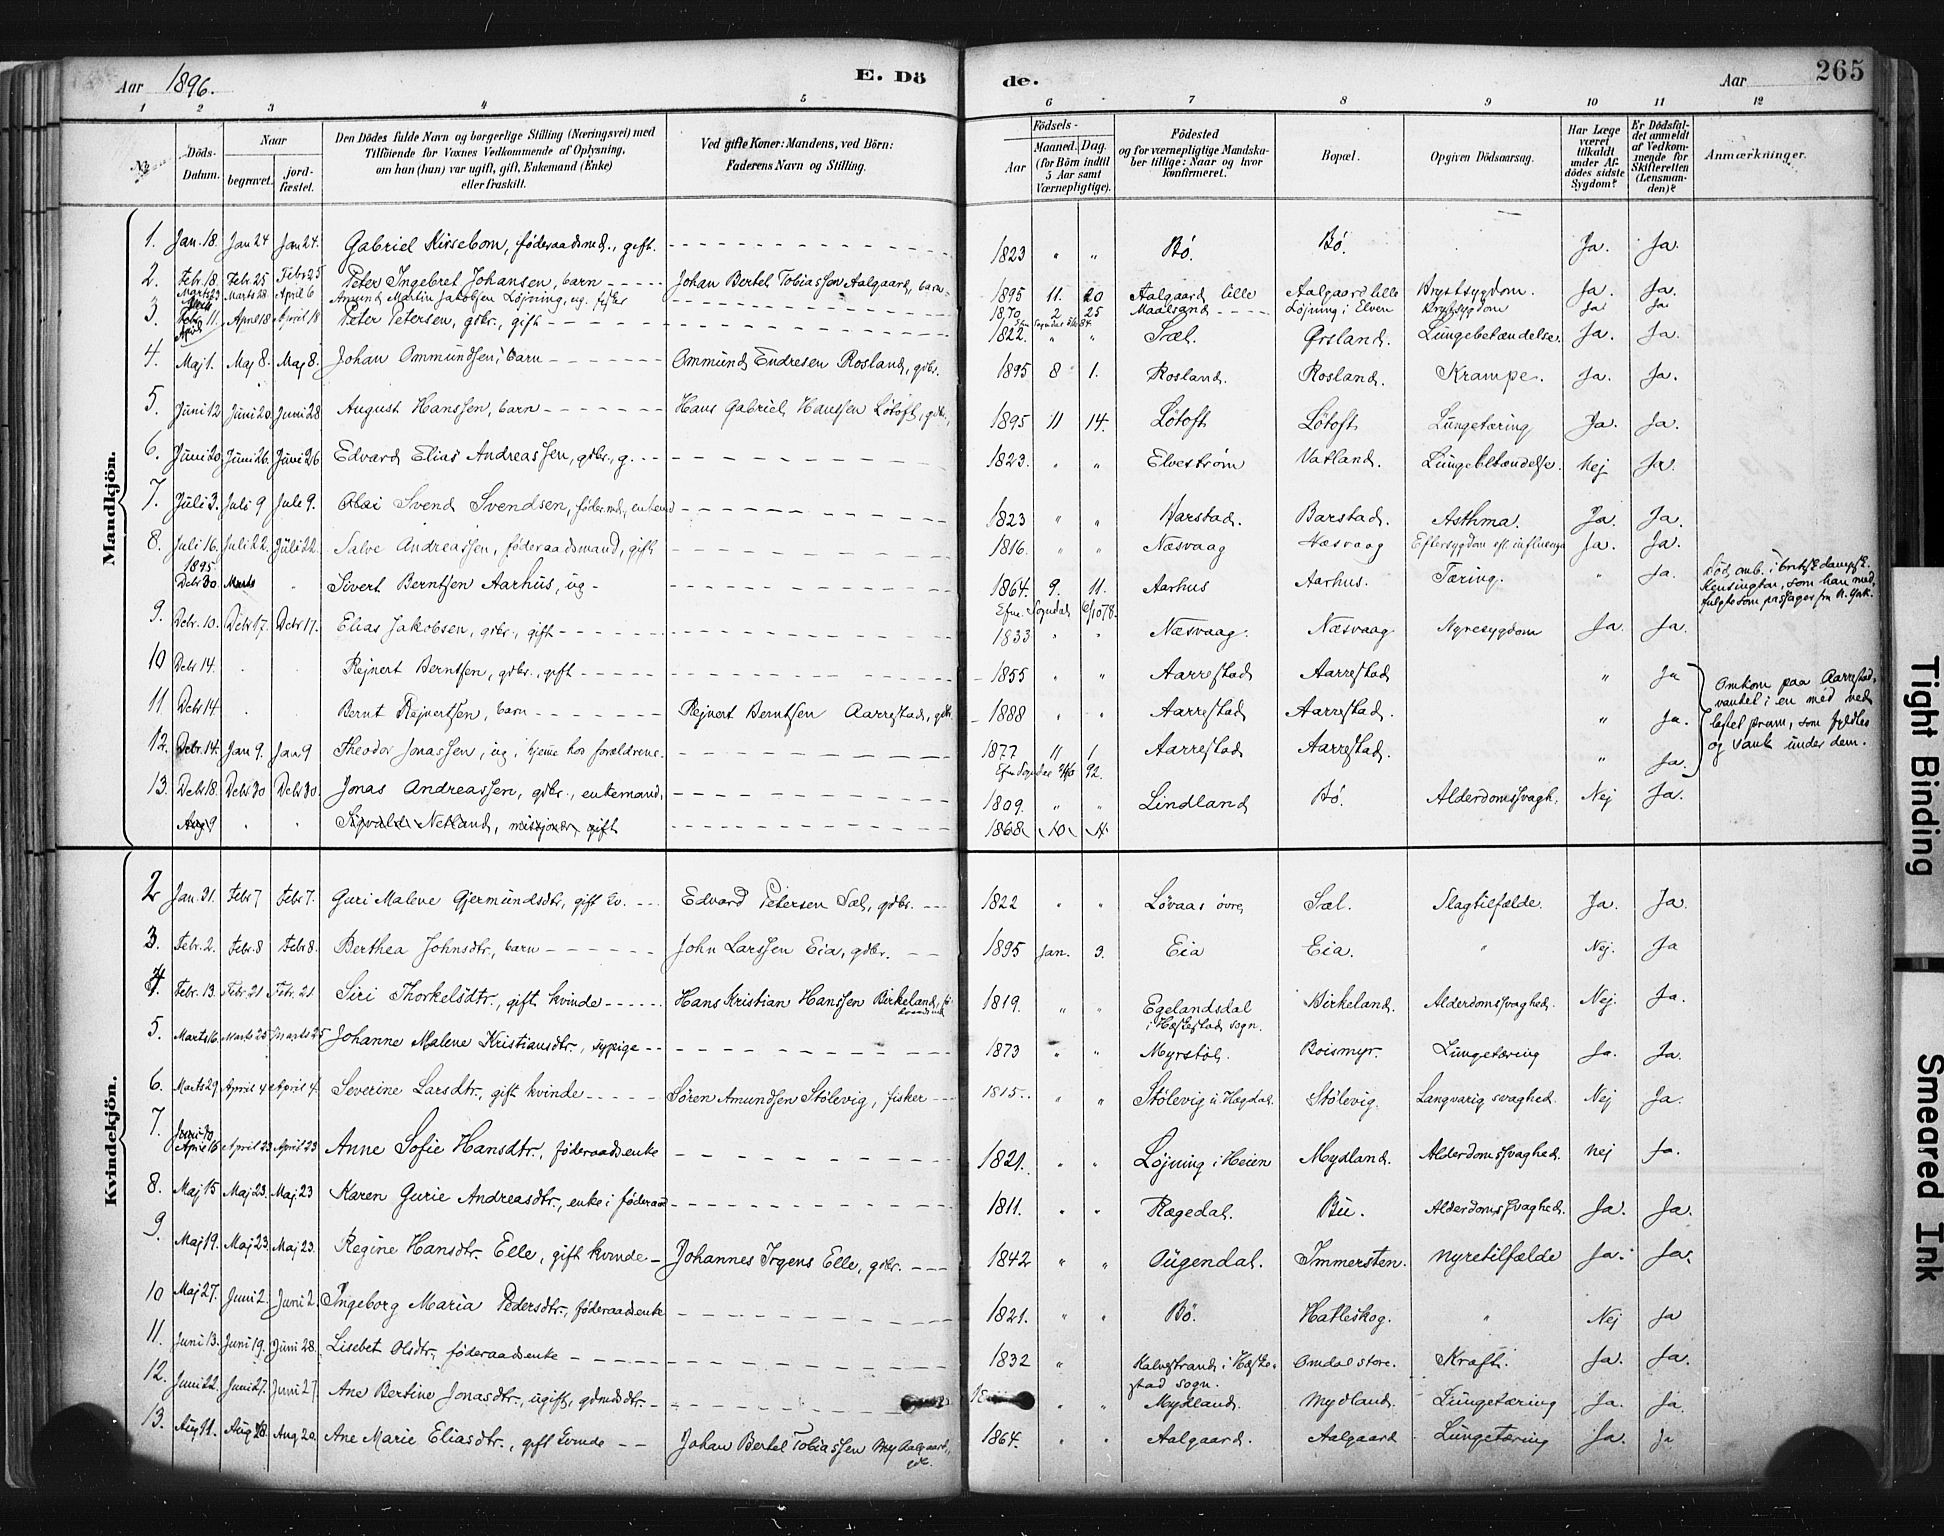 Aar 1896. E. Dö de. Aar 265
1 2 3 4 5 6 7 8 9 10 11 12
No. Döds-Datum. Naar begravet. jord-fæstet. Den Dödes fulde Navn og borgerlige Stilling (Næringsvei) med Tilföiende for Voxnes Vedkommende af Oplysning, om han (hun) var ugift, gift, Enkemand (Enke) eller fraskilt. Ved gifte Koner: Mandens, ved Börn: Faderens Navn og Stilling. Födsels- Aar Maaned. Dag. (for Börn indtil 5 Aar samt Værnepligtige). Födested og for værnepligtige Mandskaber tillige: Naar og hvor konfirmeret. Bopæl. Opgiven Dödsaarsag. Har Læge været tilkaldt under Afdödes sidste Sygdom? Er Dödsfaldet anmeldt af Vedkommende for Skifteretten (Lensmanden)? Anmærkninger.
Mandkjön.
1. Jan. 18. Jan 24 Jan 24. Gabriel Kirsebom, føderaadsmd., gift. 1823 " " Bø. Bø. Ja. Ja.
2. Febr. 18. Febr. 25 Febr 25 Peter Ingebret Johansen, barn Johan Bertel Tobiassen Aalgaard, 1895 11. 20 Aalgaard lille Aalgaard lille Brystsygdom. Ja. Ja.
Marts 23 Marts 28 April 6 Amund Martin Jakobsen Løjning, ug. fisker 1870 2 25 Løjning i Elven Brystsygdom Ja Ja
3. 11. April 18 April 18 Peter Petersen, gdbr., gift 1822. " " Sæl. Ørsland. Lungebetændelse. Ja. Ja.
4. Maj 1. Maj 8. Maj 8. Johan Ommundsen, barn Ommund Endresen Rosland, gdbr. 1895 8 1. Rosland. Rosland. Krampe. Ja. Ja.
5. Juni 12 Juni 20. Juni 28 August Hanssen, barn Hans Gabriel Hanssen Løtoft, gdbr. 1895 11 14. Løtoft Løtoft Lungetæring Ja. Ja.
6. Juni 20 Juni 26. Juni 26 Edvard Elias Andreassen, gdbr., g. 1823. " " Elvestrøm Vatland. Lungebetændelse. Nej Ja.
7. Juli 3. Juli 9 Juli 9. Svend Svendsen, føder.md., enkemd 1823 " " Barstad. Barstad. Asthma. Ja. Ja.
8. Juli 16. Juli 22. Juli 22. Salve Andreassen, føderaadsmand, gift 1816. " " Næsvaag Næsvaag Eftersygdom eft. influenza Ja. Ja.
1895 Debr 30 Marts Sivert Berntsen Aarhus, ug 1864. 9. 11. Aarhus Aarhus. Tæring. " Ja. Død omb. i britisk dampsk. Kensington, som han medfulgte som passager fra N. York.
Cfm. Sogndal 6/10 78.
9. Debr. 10. Debr 17. Debr 17. Elias Jakobsen, gdbr., gift 1833 " " Næsvaag. Næsvaag Nyresygdom Ja. Ja.
10 Debr 14. Rejnert Berntsen, gdbr., gift 1855 " " Aarrestad Aarrestad " Ja
11 Debr 14 Bernt Rejnertsen, barn Rejnert Berntsen Aarrestad, gdbr. 1888 " " Aarrestad Aarrestad. " Ja.
Omkom paa Aarrestadvandet i en med ved lastet pram, som fyldtes og sank under dem.
12. Debr. 14. Jan 9. Jan 9 Theodor Jonassen, ug., hjemme hos forældrene. 1877 11 1. Aarrestad Aarrestad. " Ja.
13. Debr 18. Debr 30 Debr 30. Jonas Andreassen, gdbr., enkemand. 1809. " " Lindland Bø. Alderdomssvagh. Nej Ja.
Aug 9 Sigvald Netland, gift 1868 10
Kvindekjön.
2 Jan. 31. Febr 7 Febr 7. Guri Malene Gjermundsdtr., gift kv. Edvard Petersen Sæl, gdbr. 1822 " " Løvaas øvre Sæl. Slagtilfælde. Ja. Ja.
3. Febr. 2. Febr 8 Febr 8. Berthea Johnsdtr., barn John Larssen Eia, gdbr. 1895 Jan. 3. Eia Eia. " Nej. Ja
4. Febr. 13. Febr. 21 Febr. 21 Siri Thorkelsdtr., gift kvinde Hans Kristian Hanssen Birkeland, 1819. " " Egelandsdal i Hæskestad sogn. Birkeland. Alderdomssvaghed. Nej. Ja.
5. Marts 16. Marts 25 Marts 25 Johanne Malene Kristiansdtr., sypige 1873 " " Myrstøl. Boismyr. Lungetæring Ja. Ja.
6. Marts 29 April 4 April 4. Severine Larsdtr., gift kvinde Søren Amundsen Stølevig, fisker 1815. " Stølevig i Hægdal. Stølevig. Langvarig svaghed. Nej Ja.
7. April 16 April 23 April 23 Anne Sofie Hansdtr., føderaadsenke 1821. " " Løjning i Heien Mydland. Alderdomssvaghed. Nej Ja.
8. Maj 15 Maj 23. Maj 23 Karen Gurie Andreasdtr., enke i føderaad 1811. " " Rægedal. Bu. Alderdomssvaghed. Ja. Ja.
9. Maj 19. Maj 23. Maj 23. Regine Hansdtr. Elle, gift kvinde Johannes Irgens Elle, gdbr. 1842 " " Ougendal. Immersten. Nyretilfælde Ja. Ja.
10 Maj 27. Juni 2. Juni 2. Ingeborg Maria Pedersdtr., føderaadsenke 1821. " " Bø. Hatleskog. " Nej Ja
11. Juni 13. Juni 19. Juni 28. Lisebet Olsdtr., føderaadsenke 1832 " Kalvestrand i Hæskestad sogn. Omdal store. Kræft. Ja. Ja.
12. Juni 22. Juni 27. Juni 27. Ane Bertine Jonasdtr., ugift, gdmdsdtr. " " Mydland. Mydland. Lungetæring Ja. Ja.
13. Aug 11. Aug 18. Aug 20. Ane Marie Eliasdtr., gift kvinde Johan Bertel Tobiassen My Aalgaard, gdbr. 1864. " " Aalgaard. Aalgaard Lungetæring Ja. Ja
Tight Binding
Smeared Ink